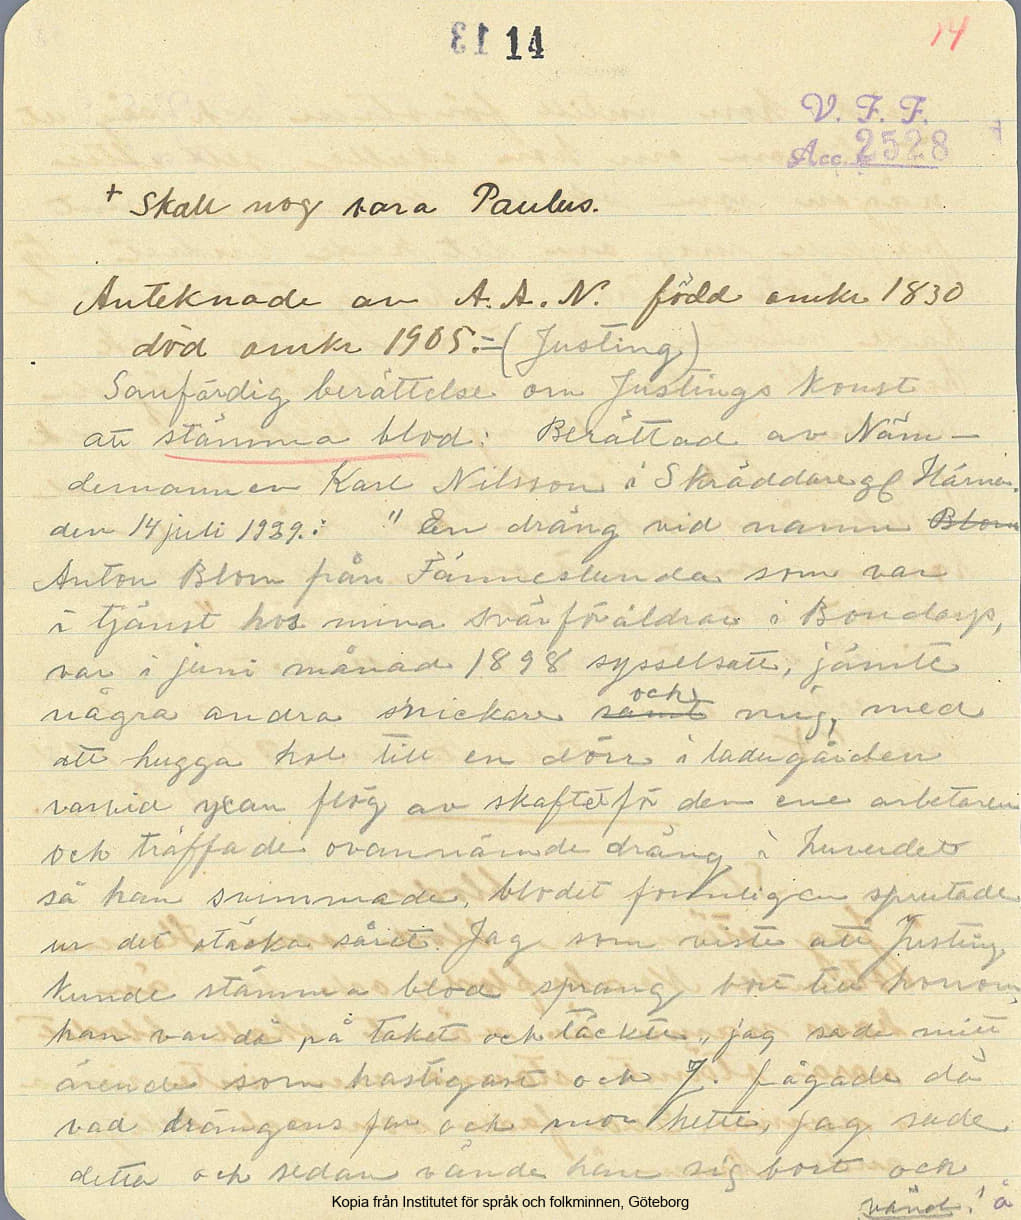 13 14
14
V. F. F.
Acc. 2528
+ Skall nog vara Paulus.
Anteknade av A. A. N. född omkr 1830
död omkr 1905. = (Justing)
Sanfärdig berättelse om Justings Konst
att stämma blod: Berättad av Näm-
demannen Karl Nilsson i Skräddareg
den 14 juli 1939.: "En dräng vid namn Blom
Anton Blom från Fänneslunda som var
i tjänst hos mina svärföräldrar i Bondarp,
var i juni månad 1898 sysselsatt, jämte
några andra snickare samt och mig, med
att hugga hol till en dörr i ladugården
varvid yxan flög av skaftet för den ene arbetaren
och träffade ovannämde dräng i huvudet
så han svimmade, blodet formligen sprutade
ur det otäcka såret. Jag som viste att Justing
kunde stämma blod sprang bort till honom,
han var då på taket och täckte, jag sade mitt
ärende som hastigast och J. frågade då
vad drängens far och mor hette, jag sade
detta och sedan vände han sig bort och
vänd!
Kopia från Institutet för språk och folkminnen, Göteborg